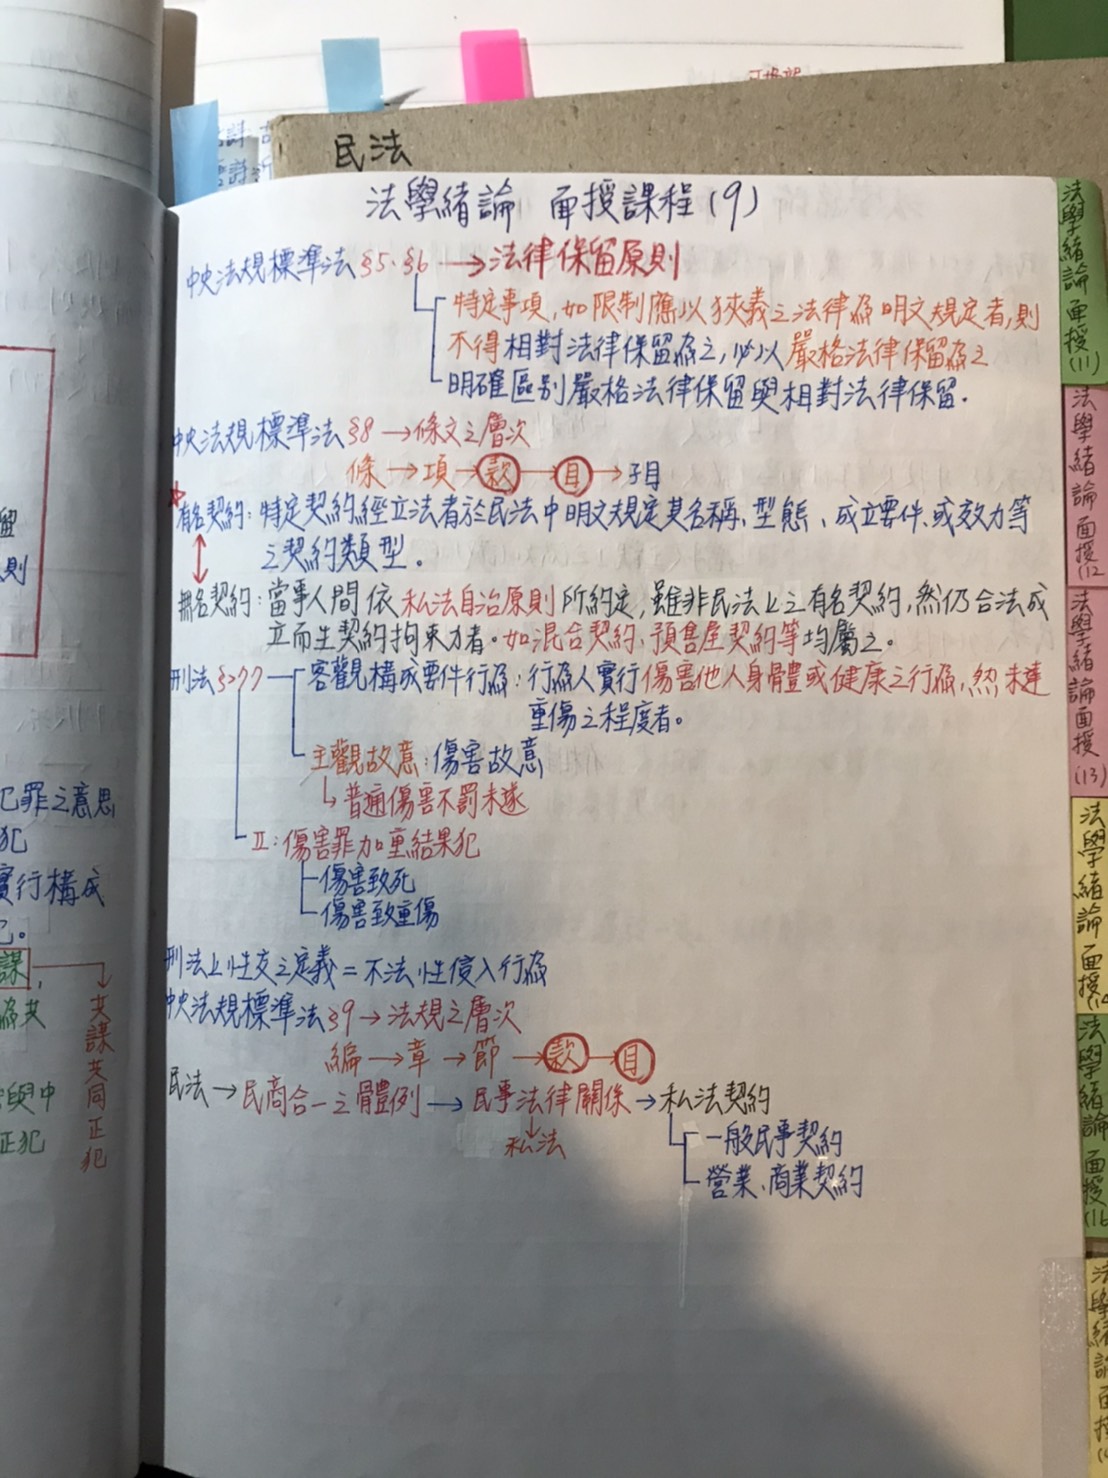 民法
法學緒論 面授課程(9)
中央法規標準法§5、§6→法律保留原則
特定事項,如限制應以狹義之法律為明文規定者,則
不得相對法律保留為之,必以嚴格法律保留為之
明確區別嚴格法律保留與相對法律保留.
中央法規標準法§8→條文之層次
條→項→款→目→子目
有名契約:特定契約經立法者於民法中明文規定其名稱、型態、成立要件、或效力等
之契約類型。
無名契約:當事人間依私法自治原則所約定,雖非民法上之有名契約,然仍合法成
立而生契約拘束力者。如混合契約、預售屋契約等均屬之。
刑法§277 客觀構成要件行為:行為人實行傷害他人身體或健康之行為,然未達
重傷之程度者。
主觀故意:傷害故意
↳普通傷害不罰未遂
II:傷害罪加重結果犯
傷害致死
傷害致重傷
刑法上性交之定義=不法性侵入行為
中央法規標準法§9→法規之層次
編→章→節→款→目
民法→民商合一之體例→民事法律關係→私法契約
↓
私法
一般民事契約
營業、商業契約
留
則
犯罪之意思
犯
實行構成
謀
為共
共謀共同正犯
與中
正犯
法學緒論面授(11)
法學緒論面授(12
法學緒論面授(13)
法學緒論面授
法學緒論面授(16
法學緒論面授